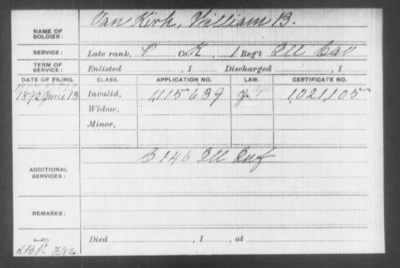 NAME OF SOLDIER: Van Kirk, William B.
SERVICE: Late rank, P Co. K, 1 Reg't Ill Cav
TERM OF SERVICE: Enlisted , 1 Discharged , 1
DATE OF FILING. CLASS. APPLICATION NO. LAW. CERTIFICATE NO.
1892 June 13 Invalid, 1,115,639 1,021,105
Widow,
Minor,
ADDITIONAL SERVICES: E 146 Ill Inf
REMARKS:
Died , 1 , at